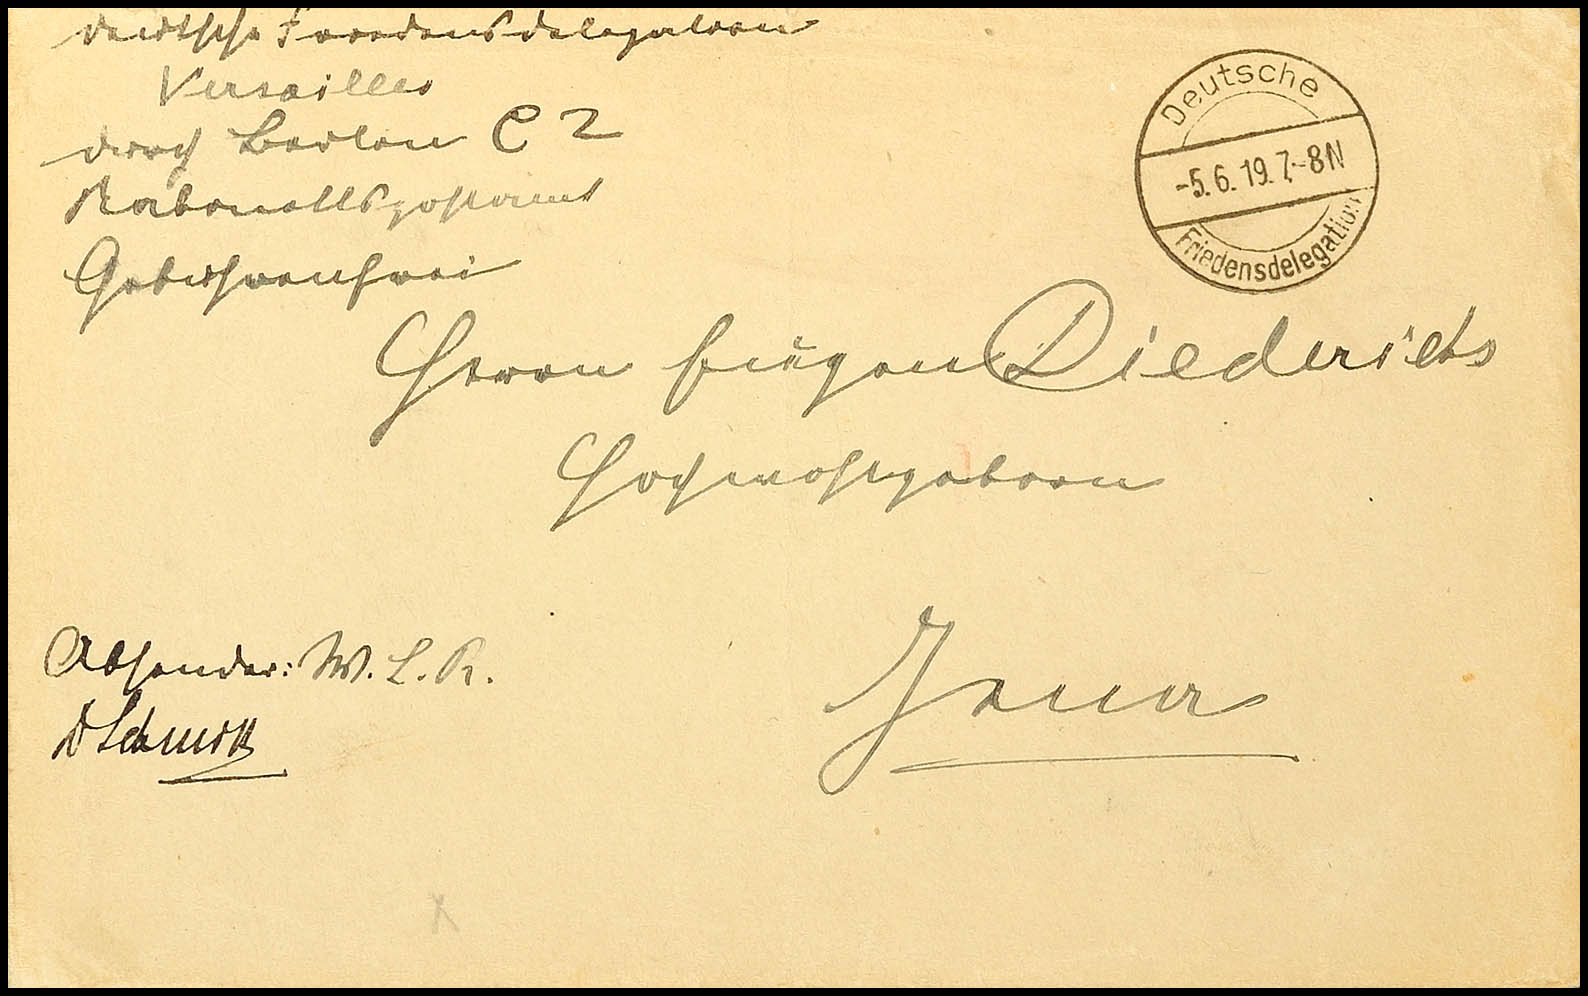 Deutsche Friedensdelegation
Versailles
durch Berlin C 2
Gebührenfrei
Deutsche
-5.6.19.7-8N
Friedensdelegation
Herrn Eugen Diederichs
Hochwohlgeboren
Jena
Absender: W. L. R.